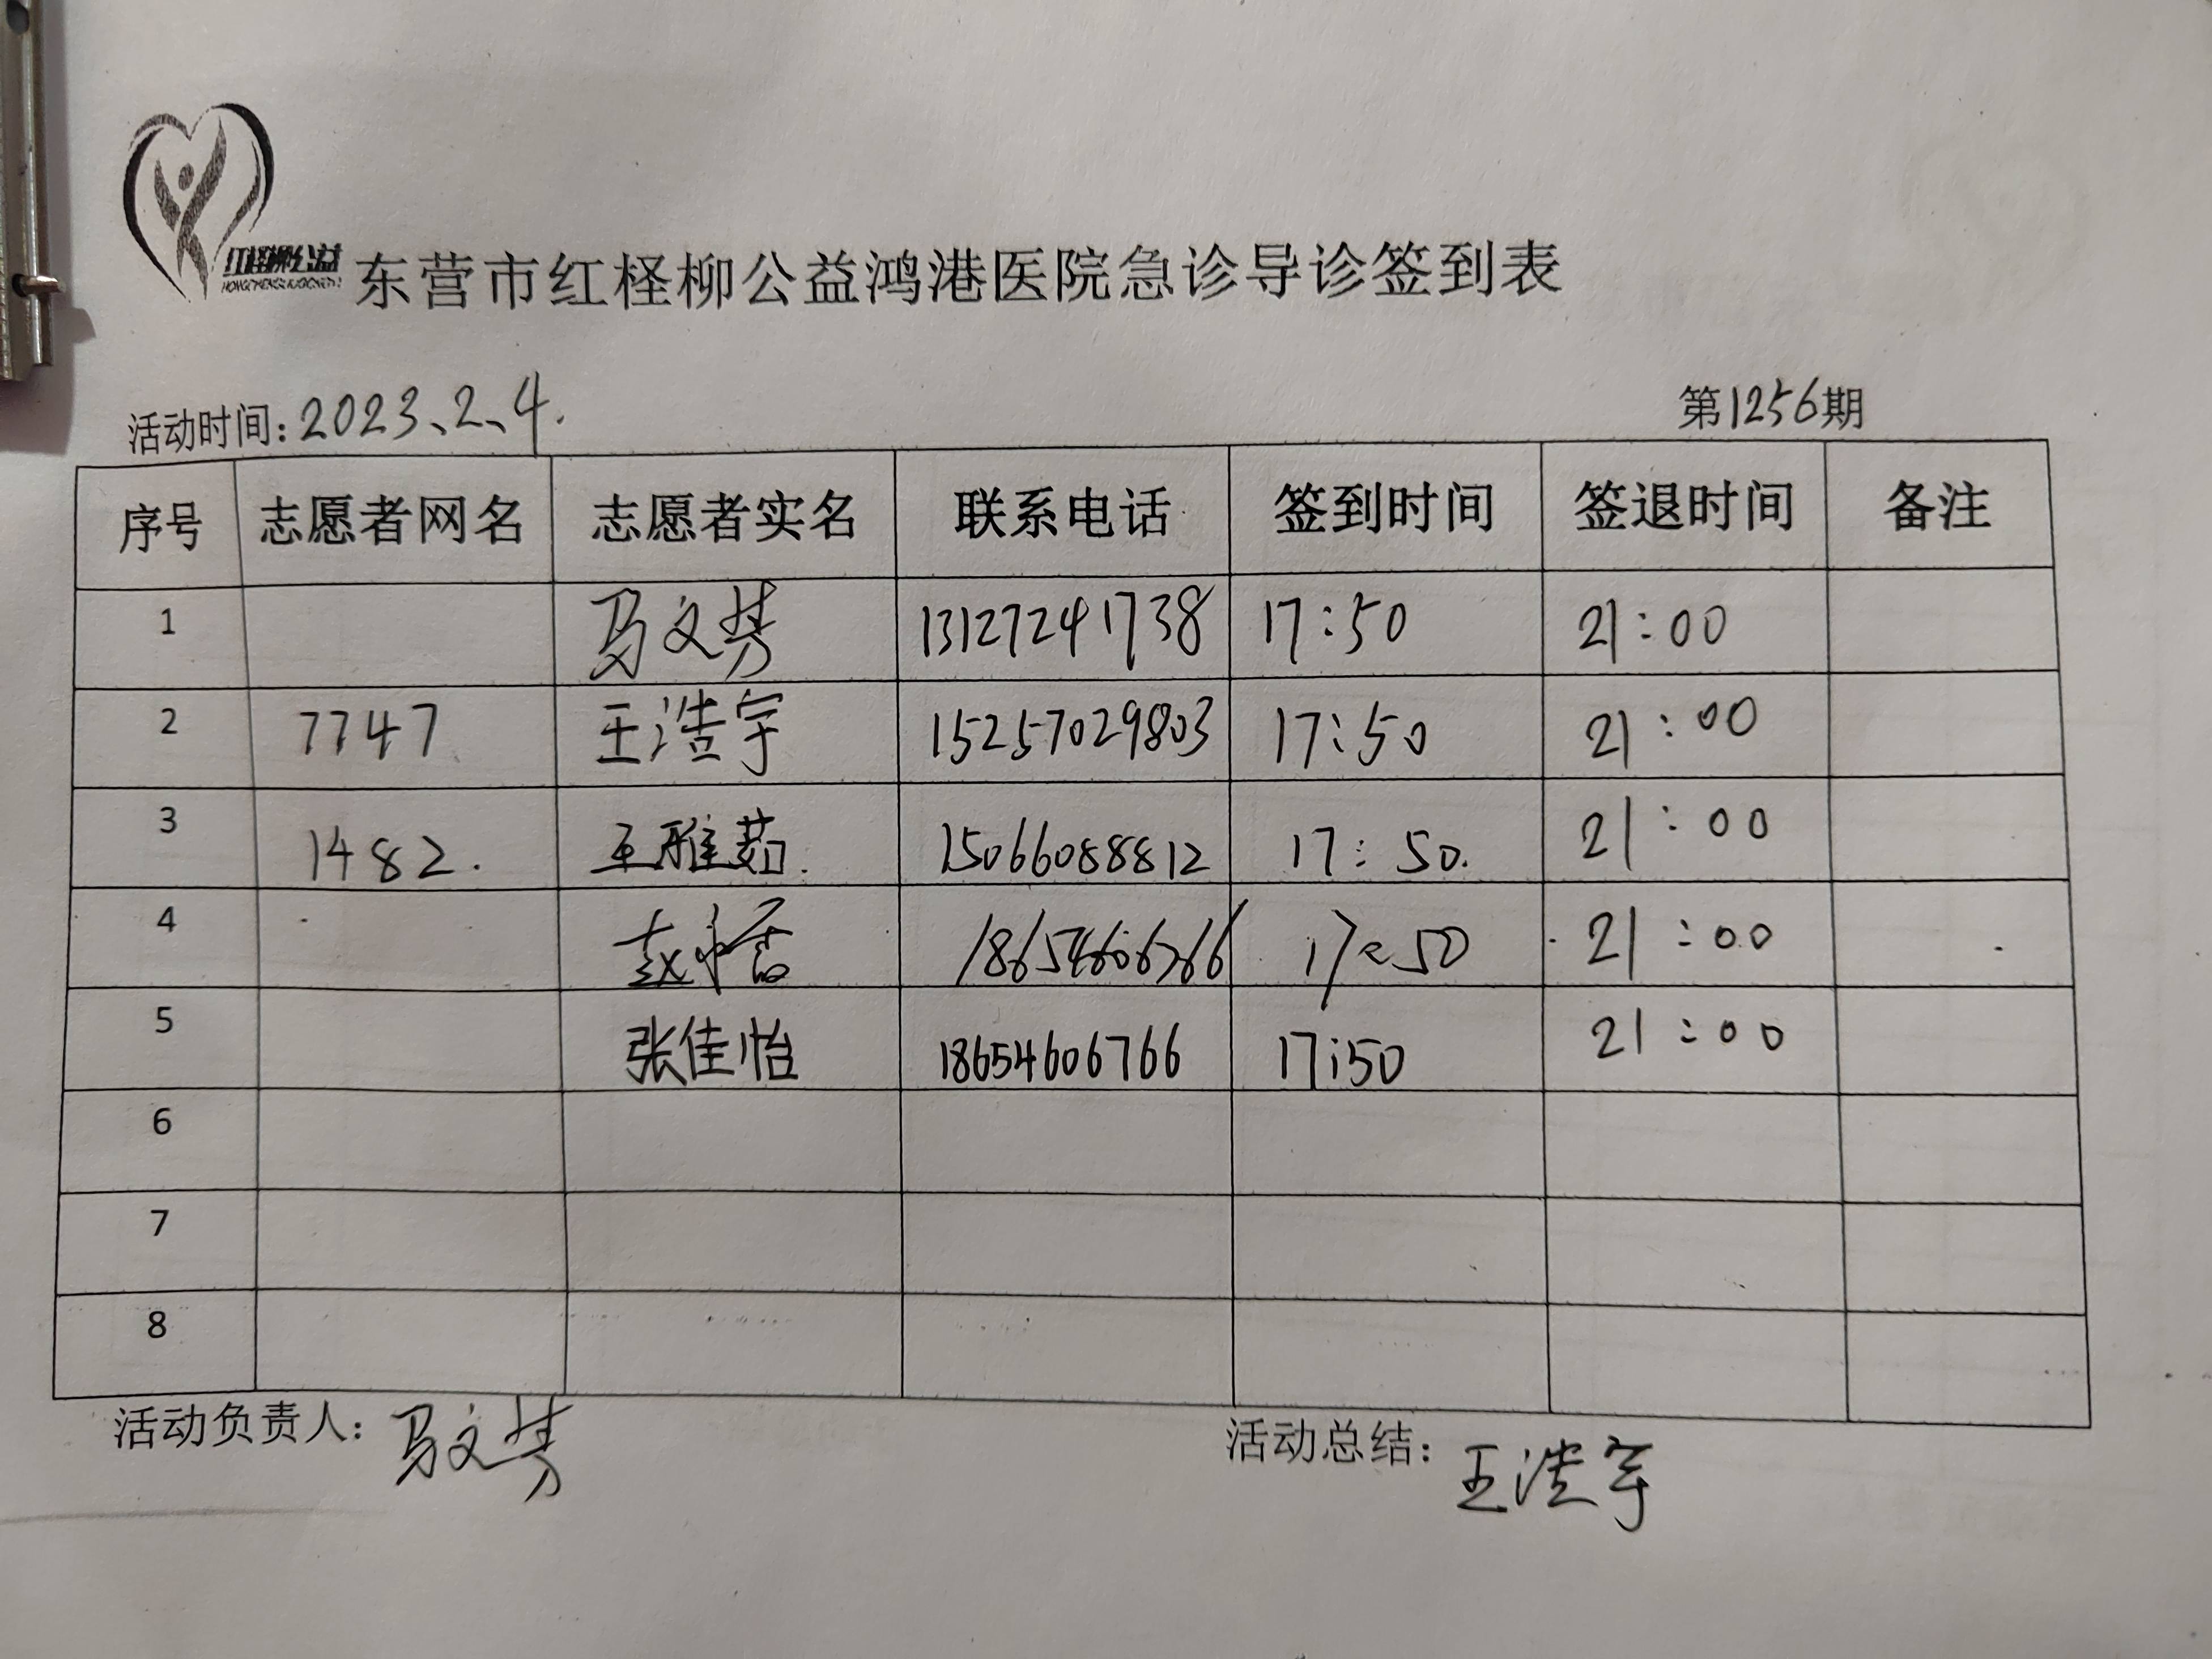 红柽柳公益
东营市红柽柳公益鸿港医院急诊导诊签到表
活动时间：2023、2、4.
第1256期
序号 志愿者网名 志愿者实名 联系电话 签到时间 签退时间 备注
1 马文 13127241738 17:50 21:00
2 7747 王浩宇 15257029803 17:50 21:00
3 1482. 王雅茹. 15066088812 17:50. 21:00
4 赵 17:50 21:00
5 张佳怡 18654606766 17:50 21:00
6
7
8
活动负责人：马文
活动总结：王浩宇